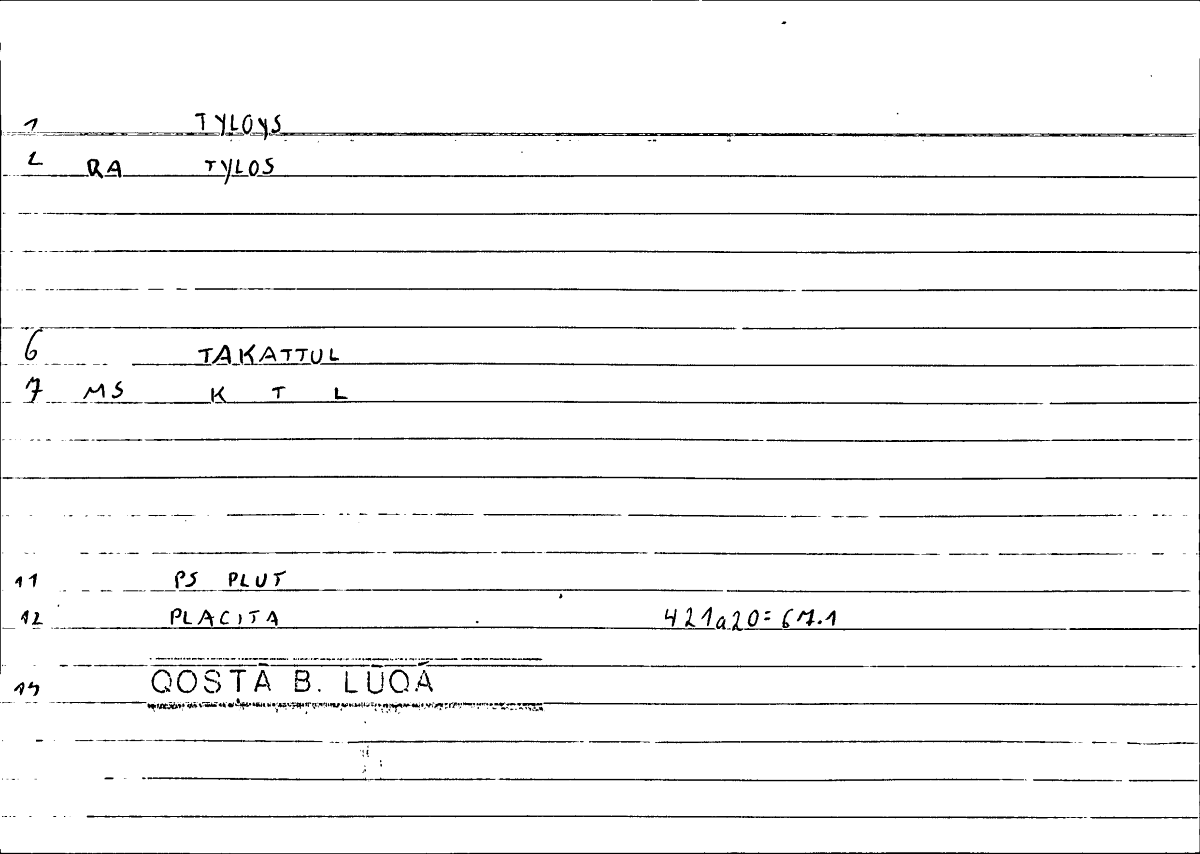 1 TYLOYS
2 RA TYLOS
6 TAKATTUL
7 MS K T L
11 PS PLUT
12 PLACITA 421a20=67.1
14 QOSTĀ B. LŪQĀ